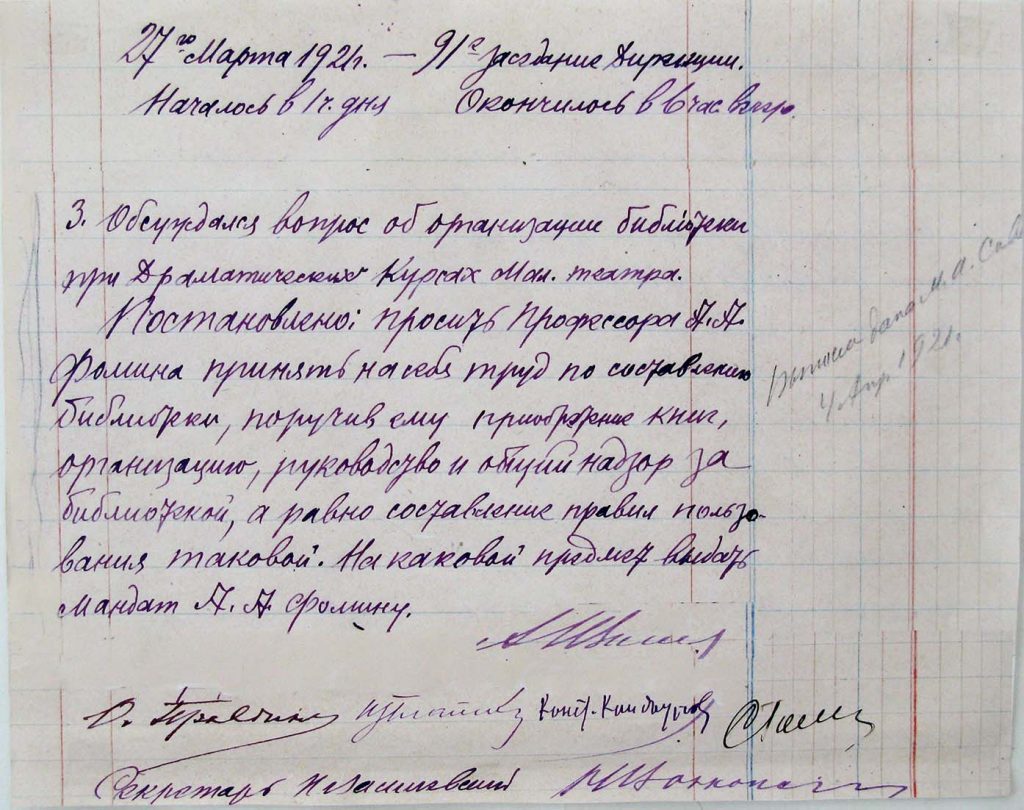 27го Марта 1921г. — 91е заседание Дирекции.
Началось в 1 ч. дня Окончилось в 6 час. вечер.
3. Обсуждался вопрос об организации библиотеки
при Драматических Курсах Мал. театра.
Постановлено: просить Профессора А. А.
Фомина принять на себя труд по составлению
библиотеки, поручив ему приобретение книг,
организацию, руководство и общий надзор за
библиотекой, а равно составление правил пользо-
вания таковой. На каковой предмет выдать
мандат А. А. Фомину.
О. Правдин
Секретарь
4 Апр. 1921.